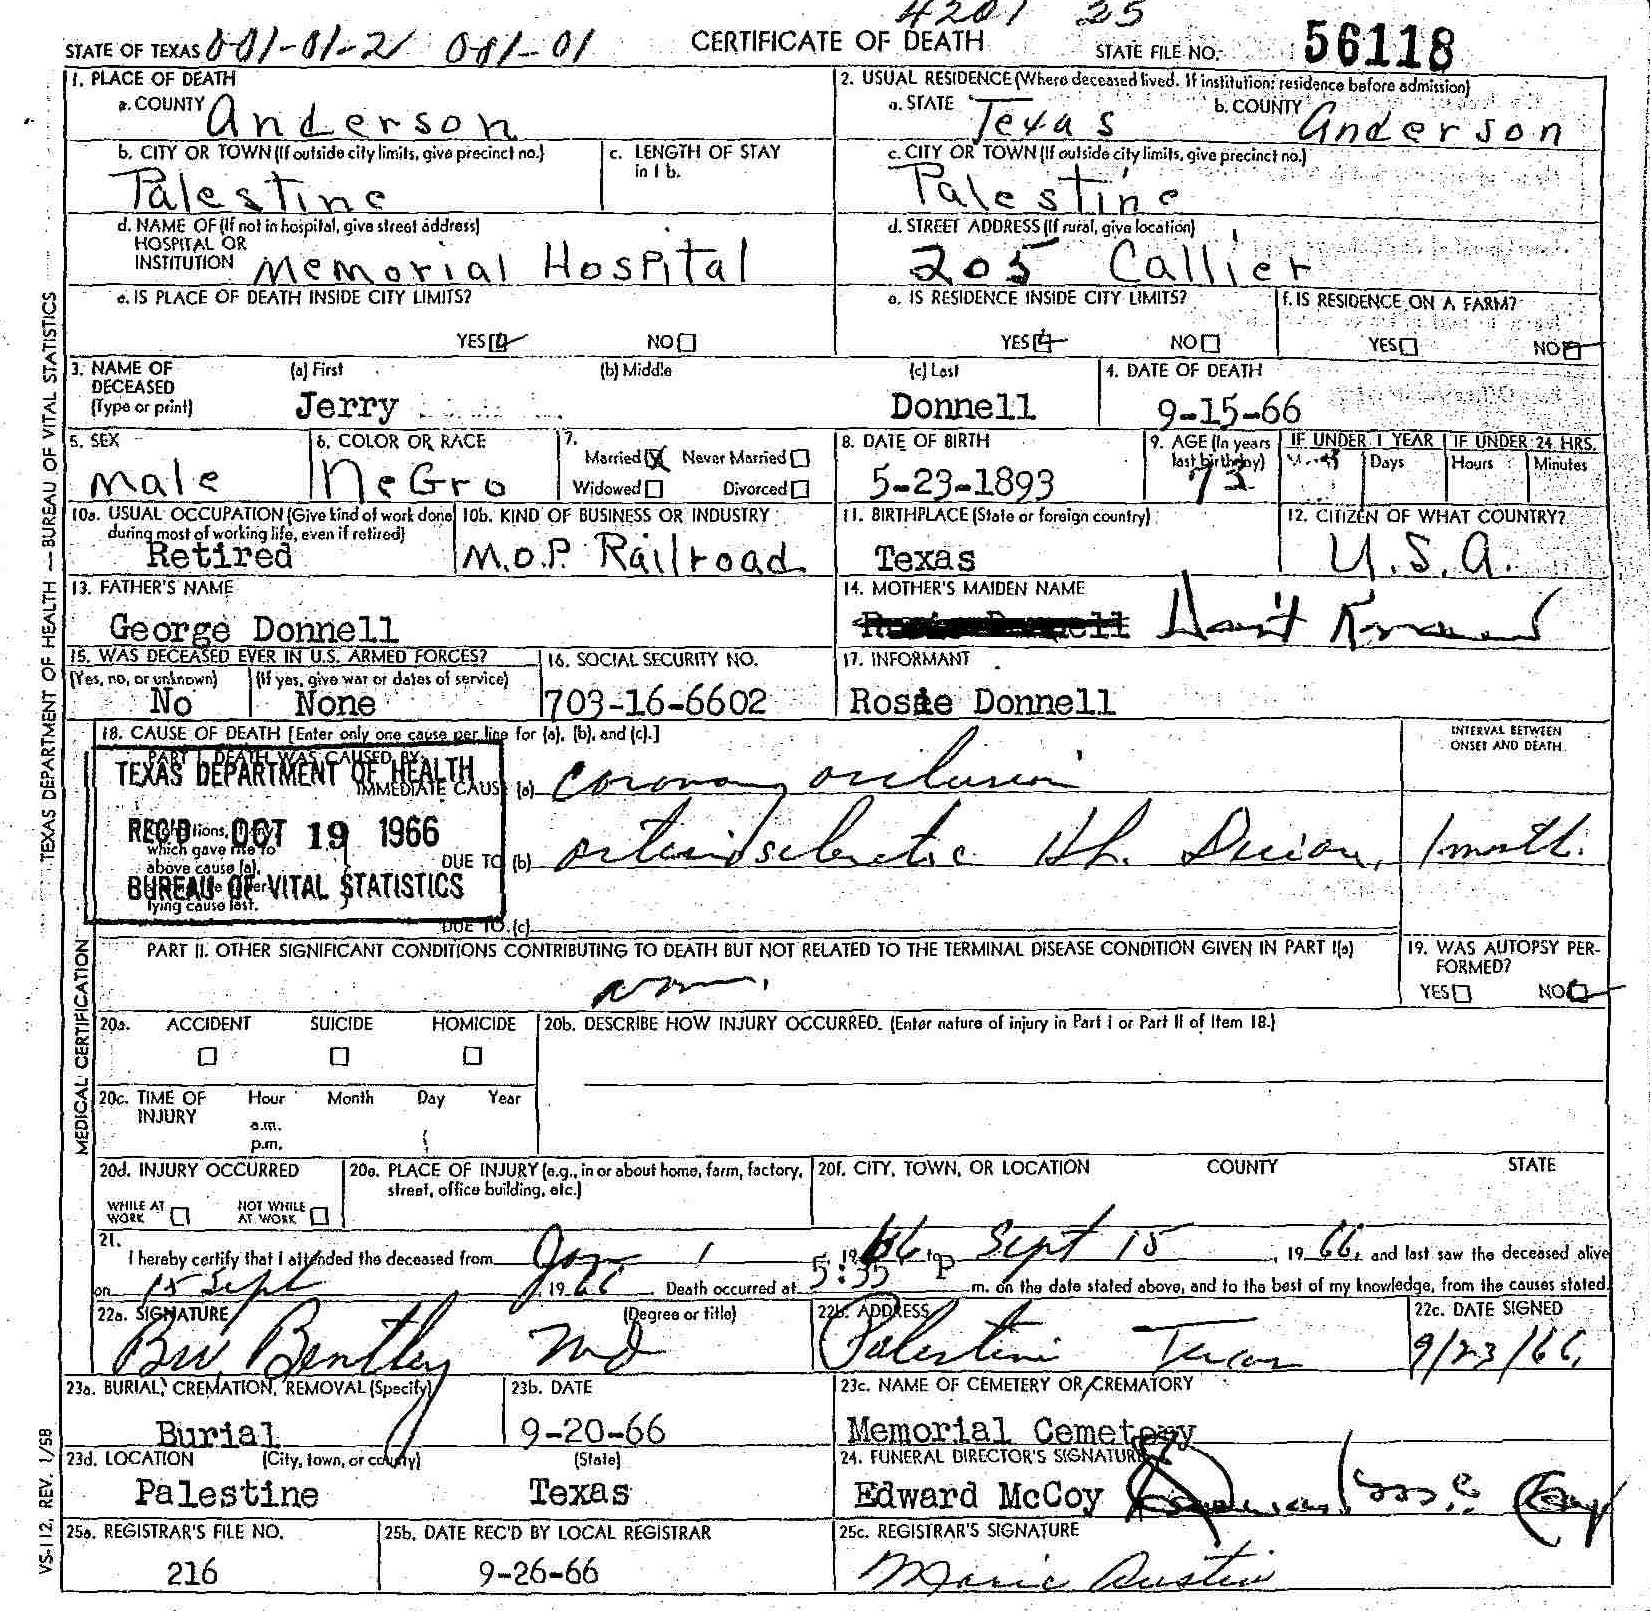 4201 25
STATE OF TEXAS 001-01-2 001-01 CERTIFICATE OF DEATH STATE FILE NO. 56118
1. PLACE OF DEATH
a. COUNTY Anderson
2. USUAL RESIDENCE (Where deceased lived. If institution: residence before admission)
a. STATE Texas b. COUNTY Anderson
b. CITY OR TOWN (If outside city limits, give precinct no.)
Palestine
c. LENGTH OF STAY
in 1 b.
c. CITY OR TOWN (If outside city limits, give precinct no.)
Palestine
d. NAME OF (If not in hospital, give street address)
HOSPITAL OR
INSTITUTION Memorial Hospital
d. STREET ADDRESS (If rural, give location)
205 Callier
e. IS PLACE OF DEATH INSIDE CITY LIMITS?
YES NO
e. IS RESIDENCE INSIDE CITY LIMITS?
YES NO
f. IS RESIDENCE ON A FARM?
YES NO
3. NAME OF
DECEASED
(Type or print)
(a) First (b) Middle (c) Last
Jerry Donnell
4. DATE OF DEATH
9-15-66
5. SEX
Male
6. COLOR OR RACE
NeGro
7.
Married X Never Married
Widowed Divorced
8. DATE OF BIRTH
5-23-1893
9. AGE (In years
last birthday)
73
IF UNDER 1 YEAR IF UNDER 24 HRS.
Days Hours Minutes
10a. USUAL OCCUPATION (Give kind of work done
during most of working life, even if retired)
Retired
10b. KIND OF BUSINESS OR INDUSTRY
M.O.P. Railroad
11. BIRTHPLACE (State or foreign country)
Texas
12. CITIZEN OF WHAT COUNTRY?
U.S.A.
13. FATHER'S NAME
George Donnell
14. MOTHER'S MAIDEN NAME
Don't Known
15. WAS DECEASED EVER IN U.S. ARMED FORCES?
(Yes, no, or unknown) (If yes, give war or dates of service)
No None
16. SOCIAL SECURITY NO.
703-16-6602
17. INFORMANT
Rosie Donnell
18. CAUSE OF DEATH [Enter only one cause per line for (a), (b), and (c).]
INTERVAL BETWEEN
ONSET AND DEATH
PART I. DEATH WAS CAUSED BY:
TEXAS DEPARTMENT OF HEALTH
IMMEDIATE CAUSE (a) Coronary occlusion
REC'D OCT 19 1966
which gave rise to
above cause (a),
DUE TO (b) arteriosclerotic Ht. Disease, 1 month.
BUREAU OF VITAL STATISTICS
lying cause last.
DUE TO (c)
PART II. OTHER SIGNIFICANT CONDITIONS CONTRIBUTING TO DEATH BUT NOT RELATED TO THE TERMINAL DISEASE CONDITION GIVEN IN PART I(a)
none.
19. WAS AUTOPSY PER-
FORMED?
YES NO
20a. ACCIDENT SUICIDE HOMICIDE
20b. DESCRIBE HOW INJURY OCCURRED. (Enter nature of injury in Part I or Part II of Item 18.)
20c. TIME OF
INJURY
Hour Month Day Year
a.m.
p.m.
20d. INJURY OCCURRED
WHILE AT
WORK
NOT WHILE
AT WORK
20e. PLACE OF INJURY (e.g., in or about home, farm, factory,
street, office building, etc.)
20f. CITY, TOWN, OR LOCATION COUNTY STATE
21.
I hereby certify that I attended the deceased from Jan 1, 1966 to Sept 15, 1966, and last saw the deceased alive
on 15 Sept 1966 Death occurred at 5:35 P m. on the date stated above, and to the best of my knowledge, from the causes stated.
22a. SIGNATURE (Degree or title)
BW Bentley MD
22b. ADDRESS
Palestine Texas
22c. DATE SIGNED
9/23/66.
23a. BURIAL, CREMATION, REMOVAL (Specify)
Burial
23b. DATE
9-20-66
23c. NAME OF CEMETERY OR CREMATORY
Memorial Cemetery
23d. LOCATION (City, town, or county) (State)
Palestine Texas
24. FUNERAL DIRECTOR'S SIGNATURE
Edward McCoy
25a. REGISTRAR'S FILE NO.
216
25b. DATE REC'D BY LOCAL REGISTRAR
9-26-66
25c. REGISTRAR'S SIGNATURE
Marie Austin
TEXAS DEPARTMENT OF HEALTH — BUREAU OF VITAL STATISTICS
MEDICAL CERTIFICATION
VS-112, REV. 1/58